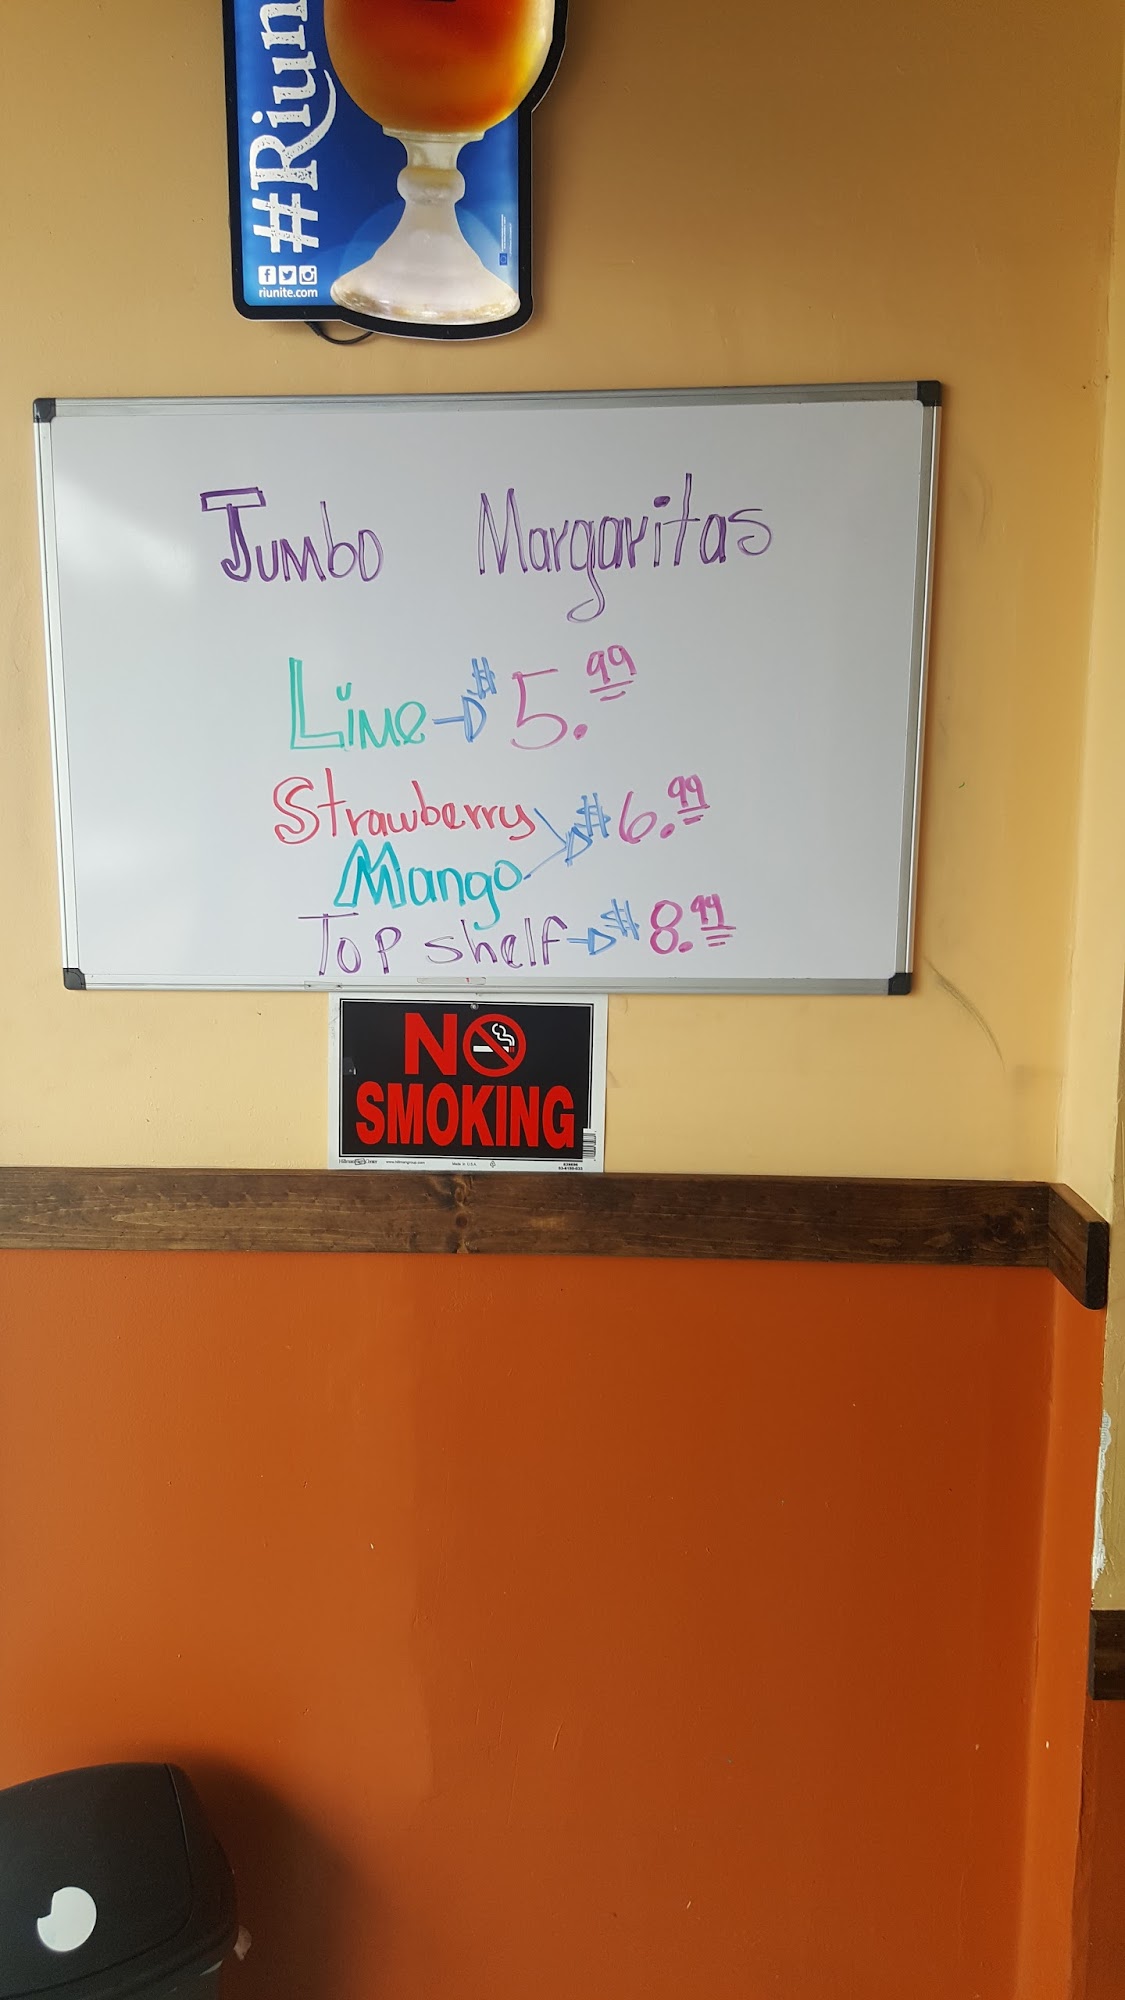 #Riun
riunite.com
Jumbo Margaritas
Lime → $5.99
Strawberry
Mango → $6.99
Top shelf → $8.99
NO
SMOKING